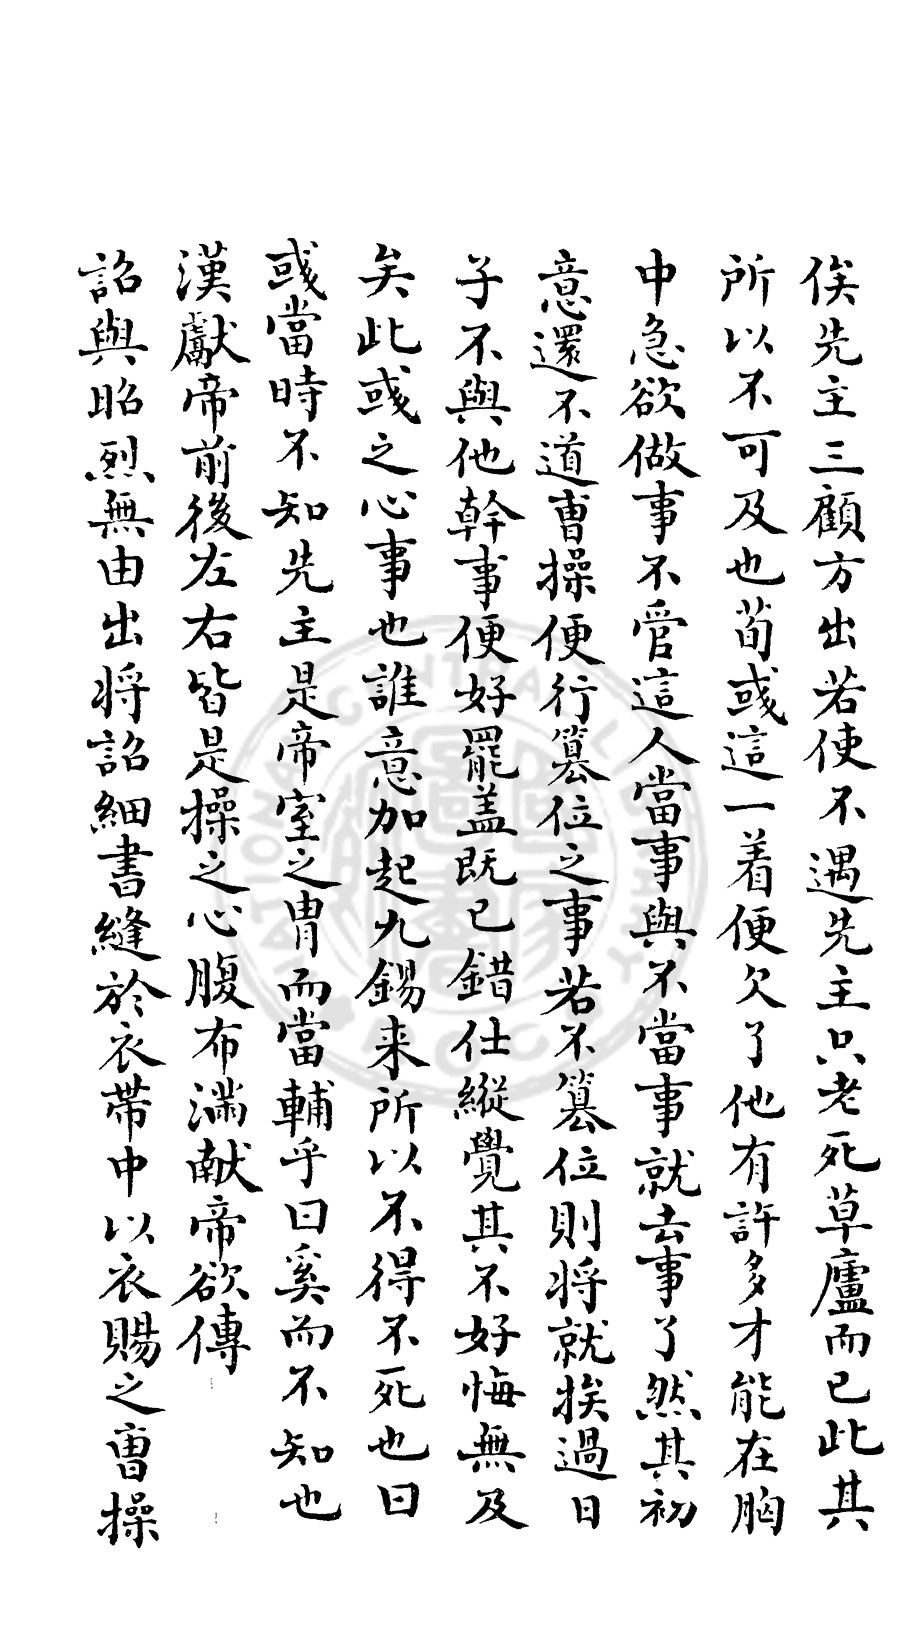 俟先主三顧方出若使不遇先主只老死草廬而已此其
所以不可及也荀彧這一着便欠了他有許多才能在胸
中急欲做事不管這人當事與不當事就去事了然其初
意還不道曹操便行篡位之事若不篡位則将就挨過日
子不與他幹事便好罷盖既已錯仕縱覺其不好悔無及
矣此彧之心事也誰意加起九錫来所以不得不死也曰
彧當時不知先主是帝室之冑而當輔乎曰奚而不知也
漢獻帝前後左右皆是操之心腹布滿献帝欲傳
詔與昭烈無由出将詔細書縫於衣帶中以衣賜之曹操